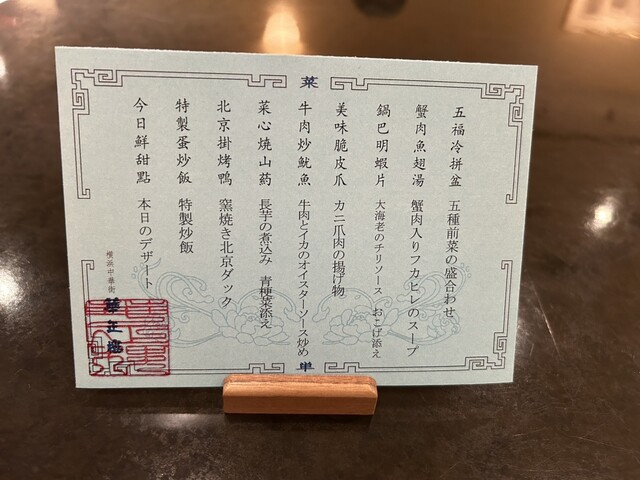 菜
五福冷拼盆 五種前菜の盛合わせ
蟹肉魚翅湯 蟹肉入りフカヒレのスープ
鍋巴明蝦片 大海老のチリソース おこげ添え
美味脆皮爪 カニ爪肉の揚げ物
牛肉炒魷魚 牛肉とイカのオイスターソース炒め
菜心焼山药 長芋の煮込み 青梗菜添え
北京掛烤鴨 窯焼き北京ダック
特製蛋炒飯 特製炒飯
今日鮮甜點 本日のデザート
横浜中華街
華正樓
単